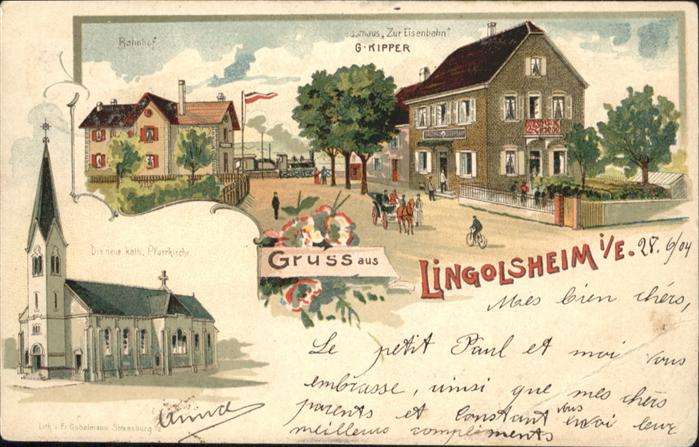 Bahnhof
Gasthaus „Zur Eisenbahn"
G. KIPPER
Die neue kath. Pfarrkirche
Gruss aus
LINGOLSHEIM i/E.
28. 6/04
Mes bien chers,
Le petit Paul et moi vous
embrasse, ainsi que mes chers
parents et Constant vous envoi leur
meilleurs compliments
Lith. v. Strassburg